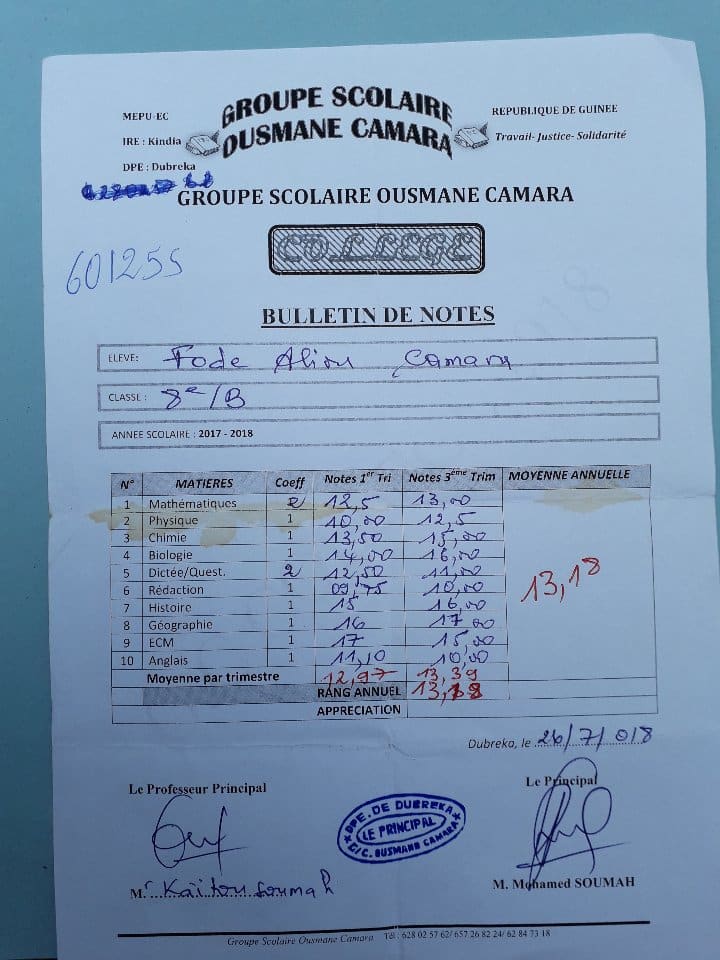 MEPU-EC
IRE : Kindia
DPE : Dubreka
GROUPE SCOLAIRE
OUSMANE CAMARA
REPUBLIQUE DE GUINEE
Travail- Justice- Solidarité
GROUPE SCOLAIRE OUSMANE CAMARA
601255
COLLEGE
BULLETIN DE NOTES
ELEVE: Fode Aliou Camara
CLASSE : 8e/B
ANNEE SCOLAIRE : 2017 - 2018
N° MATIERES Coeff Notes 1er Tri Notes 3ème Trim MOYENNE ANNUELLE
1 Mathématiques 2 12,5 13,00
2 Physique 1 10,00 12,5
3 Chimie 1 13,50 15,00
4 Biologie 1 14,00 16,00
5 Dictée/Quest. 2 12,50 11,00
6 Rédaction 1 09,75 10,00
7 Histoire 1 15 16,00
8 Géographie 1 16 17,00
9 ECM 1 17 15,00
10 Anglais 1 11,10 10,00
13,18
Moyenne par trimestre 12,97 13,39
RANG ANNUEL 13,18
APPRECIATION
Dubreka, le 26/7/018
Le Professeur Principal
Le Principal
DPE. DE DUBREKA
LE PRINCIPAL
G/C. OUSMANE CAMARA
Mr Kaïtou Soumah
M. Mohamed SOUMAH
Groupe Scolaire Ousmane Camara Tél : 628 02 57 62/ 657 26 82 24/ 62 84 73 18